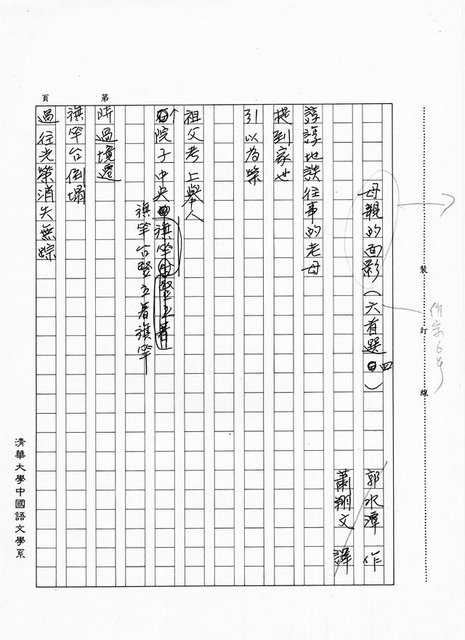 母親的面影（六首選四）
郭水潭 作
蕭翔文 譯
諄諄地談往事的老母
提到家世
引以為榮
祖父考上舉人
院子中央旗竿豎立著
旗竿台豎立著旗竿
時過境遷
旗竿台倒塌
過往光榮消失無踪
第 頁
裝 訂 線
清華大學中國語文學系